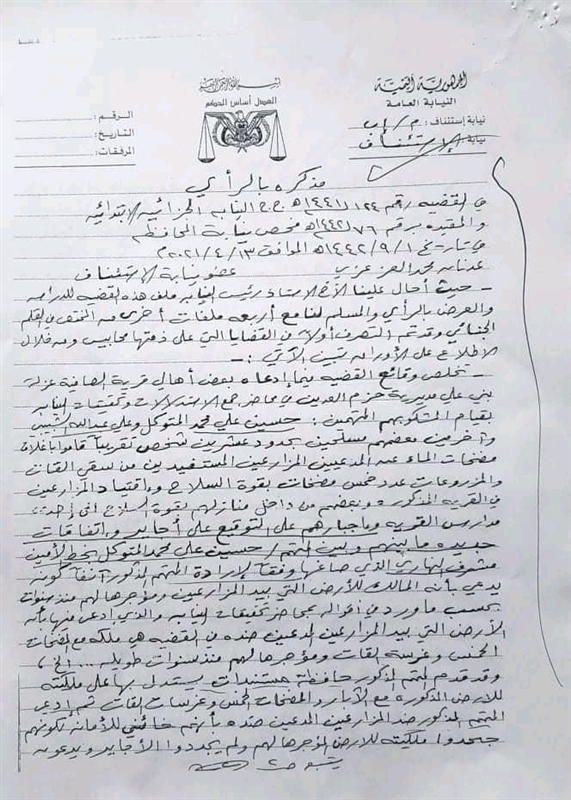 بسم الله الرحمن الرحيم
الجمهورية اليمنية
العدل أساس الحكم
النيابة العامة
الرقم :
نيابة إستئناف : م/إب
التاريخ :
نيابة : الإستئناف
المرفقات :
مذكره بالرأي
في القضيه رقم ١٢٤ / ١٤٤١هـ ج.ج النيابه الجزائيه الابتدائيه
والمقيده برقم ٧٦ / ١٤٤٢هـ فحص نيابة المحافظه
في تاريخ ١ / ٩ / ١٤٤٢هـ الموافق ١٣ / ٤ / ٢٠٢١م
عدنان محمد العزعزي عضو نيابة الإستئناف
- حيث أحال علينا الأخ الاستاذ رئيس النيابه ملف هذه القضيه للدراسه
والعرض بالرأي والمسلم لنا مع أربعه ملفات أخرى من المختص في القلم
الجنائي وقد تم التصرف أولاً في القضايا التي على ذمتها محابيس ومن خلال
الاطلاع على الأوراق تبين الآتي :-
- تتلخص وقائع القضيه بما إدعاه بعض أهالي قرية الصافية عزلة
بني علي مديرية حزم العدين في محاضر جمع الاستدلالات وتحقيقات النيابه
بقيام المشكو بهم المتهمين : حسين علي محمد المتوكل وعلي عبدالله
وآخرين معهم مسلحين بحدود عشرين شخص تقريباً قاموا بإغلاق
مضخات الماء عند المدعيين المزارعين المستفيدين من سقي القات
والمزروعات عدد خمس مضخات بقوة السلاح واقتياد المزارعين
في القريه المذكوره وبعضهم من داخل منازلهم بقوة السلاح الى إحدى
مدارس القريه وإجبارهم على التوقيع على أجاير وإتفاقات
جديده ما بينهم وبين المتهم / حسين علي محمد المتوكل بخط الأمين
مشرف النهاري الذي صاغها وفقاً لإرادة المتهم المذكور آنفاً كونه
يدعي بأنه المالك للأرض التي بيد المزارعين ومؤجرها لهم منذ سنوات
بحسب ما ورد في أقواله بمحاضر تحقيقات النيابه والذي ادعى فيها بأن
الأرض التي بيد المزارعين المدعين ضده في القضيه هي ملكه مع المضخات
الخمس وغرسه القات ومؤجرها لهم منذ سنوات طويله ... الخ
وقد قدم المتهم المذكور حافظة مستندات يستدل بها على ملكيته
للأرض المذكوره مع الآبار والمضخات الخمس وغرسات القات ثم إدعى
المتهم المذكور ضد المزارعين المدعين ضده بأنهم خائني للأمانه لكونهم
جحدوا ملكيته للأرض المؤجرها لهم ولم يجددوا الأجاير ويدعون
يتبع ص٢